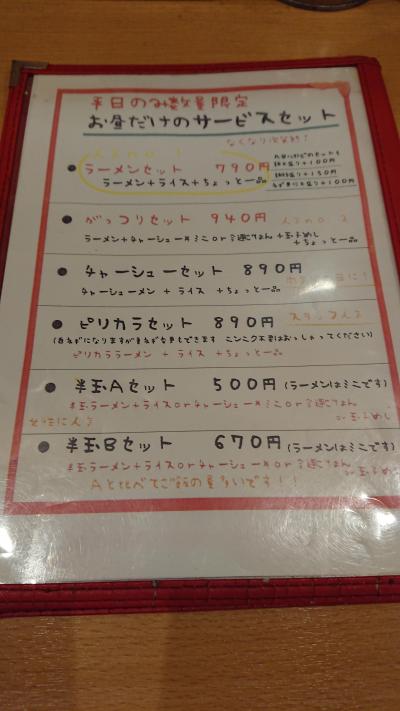 平日のみ数量限定
お昼だけのサービスセット
なくなり次第終了!
人気No.1
ラーメンセット 790円
ラーメン+ライス+ちょっと一品
+100円
+150円
+100円
がっつりセット 940円 人気No.2
ラーメン+チャーシュー丼ミニor +玉子めし
+ちょっと一品
チャーシューセット 890円
チャーシューメン + ライス +ちょっと一品
ピリカラセット 890円 スタッフ人気
ニンニク不要はおっしゃってください)
ピリカララーメン + ライス +ちょっと一品
半玉Aセット 500円 (ラーメンはミニです)
半玉ラーメン+ライスorチャーシュー丼ミニor
女性に人気
or 玉子めし
半玉Bセット 670円 (ラーメンはミニです)
半玉ラーメン+ライスorチャーシュー丼or
or 玉子めし
Aと比べてご飯の量多いです!!